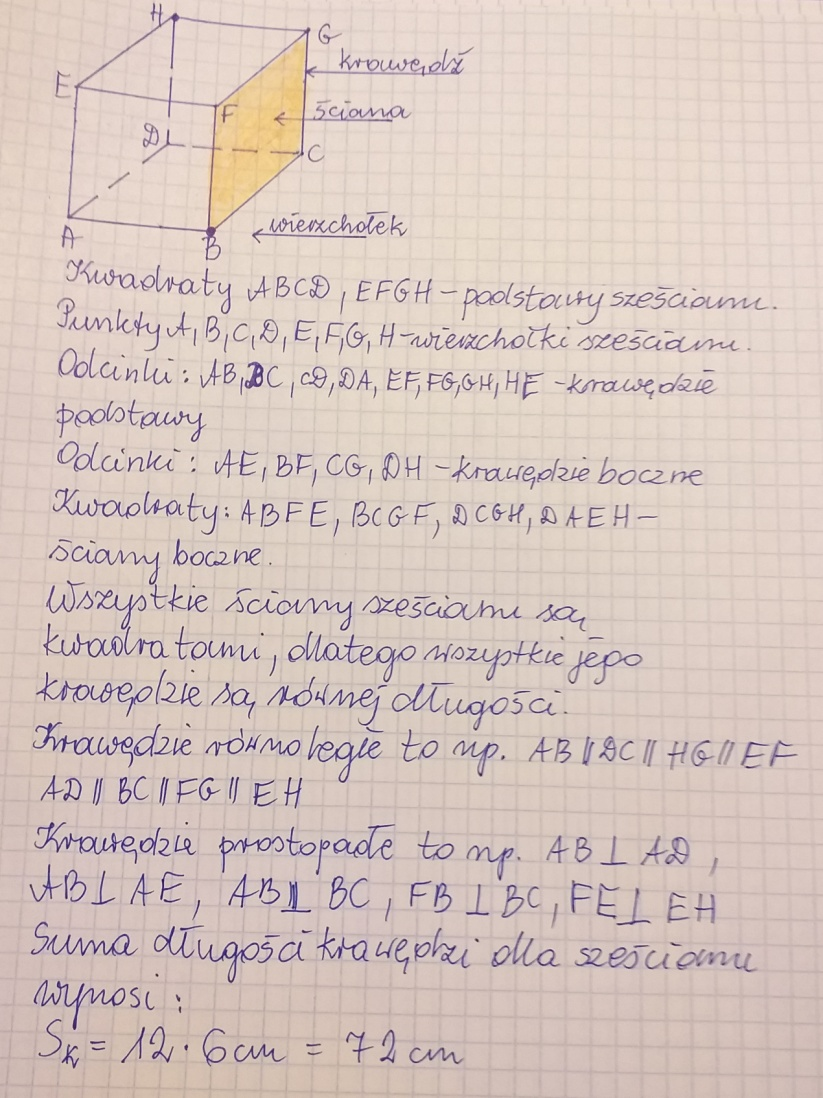 H
G
krawędź
E
F
ściana
D
C
wierzchołek
A
B
Kwadraty ABCD, EFGH - podstawy sześcianu.
Punkty A, B, C, D, E, F, G, H - wierzchołki sześcianu.
Odcinki: AB, BC, CD, DA, EF, FG, GH, HE - krawędzie
podstawy
Odcinki: AE, BF, CG, DH - krawędzie boczne
Kwadraty: ABFE, BCGF, DCGH, DAEH -
ściany boczne.
Wszystkie ściany sześcianu są
kwadratami, dlatego wszystkie jego
krawędzie są równej długości.
Krawędzie równoległe to np. AB || DC || HG || EF
AD || BC || FG || EH
Krawędzie prostopadłe to np. AB ⊥ AD,
AB ⊥ AE, AB ⊥ BC, FB ⊥ BC, FE ⊥ EH
Suma długości krawędzi dla sześcianu
wynosi:
Sk = 12 · 6 cm = 72 cm